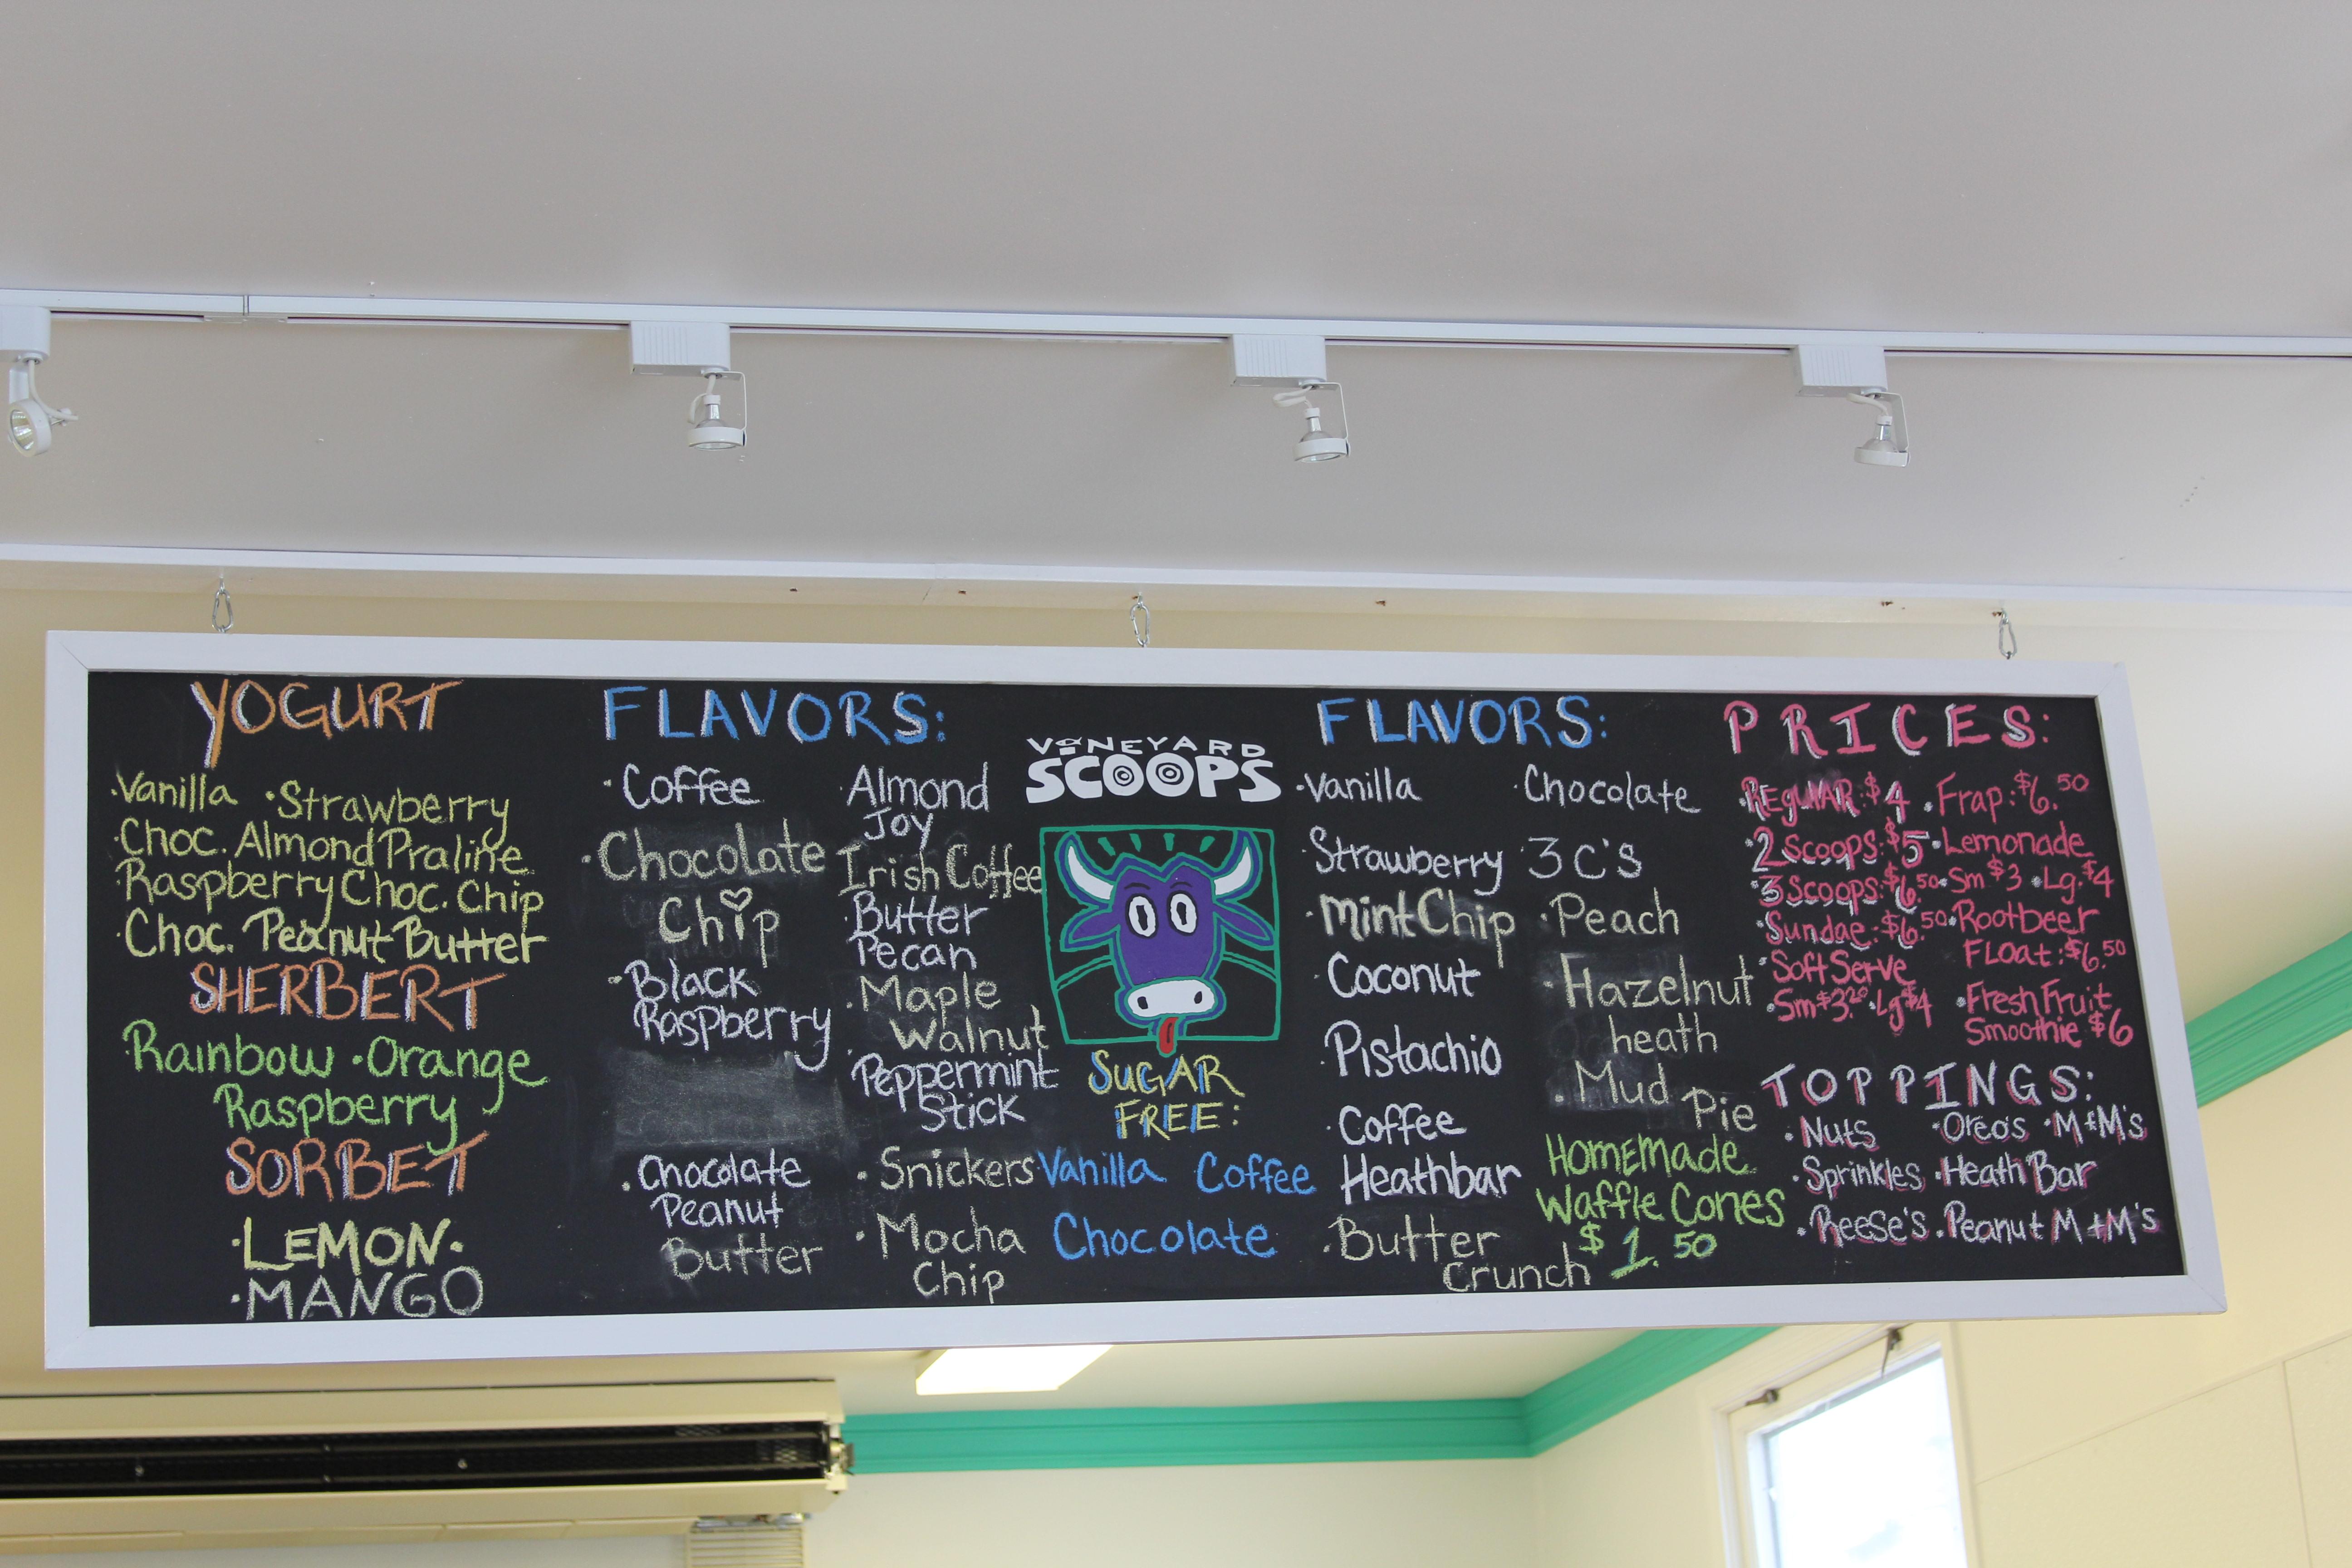 YOGURT
·Vanilla ·Strawberry
·Choc. Almond Praline
·Raspberry Choc. Chip
·Choc. Peanut Butter
SHERBERT
·Rainbow ·Orange
Raspberry
SORBET
·LEMON·
·MANGO
FLAVORS:
·Coffee
·Chocolate
Chip
·Black
Raspberry
·Chocolate
Peanut
Butter
·Almond
Joy
Irish Coffee
·Butter
Pecan
·Maple
Walnut
·Peppermint
Stick
·Snickers
·Mocha
Chip
VINEYARD
SCOOPS
SUGAR
FREE:
Vanilla Coffee
Chocolate
FLAVORS:
·Vanilla
·Strawberry
·Mint Chip
·Coconut
·Pistachio
·Coffee
Heathbar
·Butter
Crunch
·Chocolate
·3 C'S
·Peach
·Hazelnut
heath
·Mud Pie
HOMEMADE
Waffle Cones
$1.50
PRICES:
·REGULAR:$4
·2 Scoops:$5
·3 Scoops:$6.50
·Sundae:$6.50
·Soft Serve
·Sm $3.20 ·Lg $4
·Frap:$6.50
·Lemonade
·Sm $3 ·Lg.$4
·Rootbeer
Float:$6.50
·Fresh Fruit
Smoothie $6
TOPPINGS:
·Nuts ·Oreo's ·M+M's
·Sprinkles ·Heath Bar
·Reese's ·Peanut M+M's